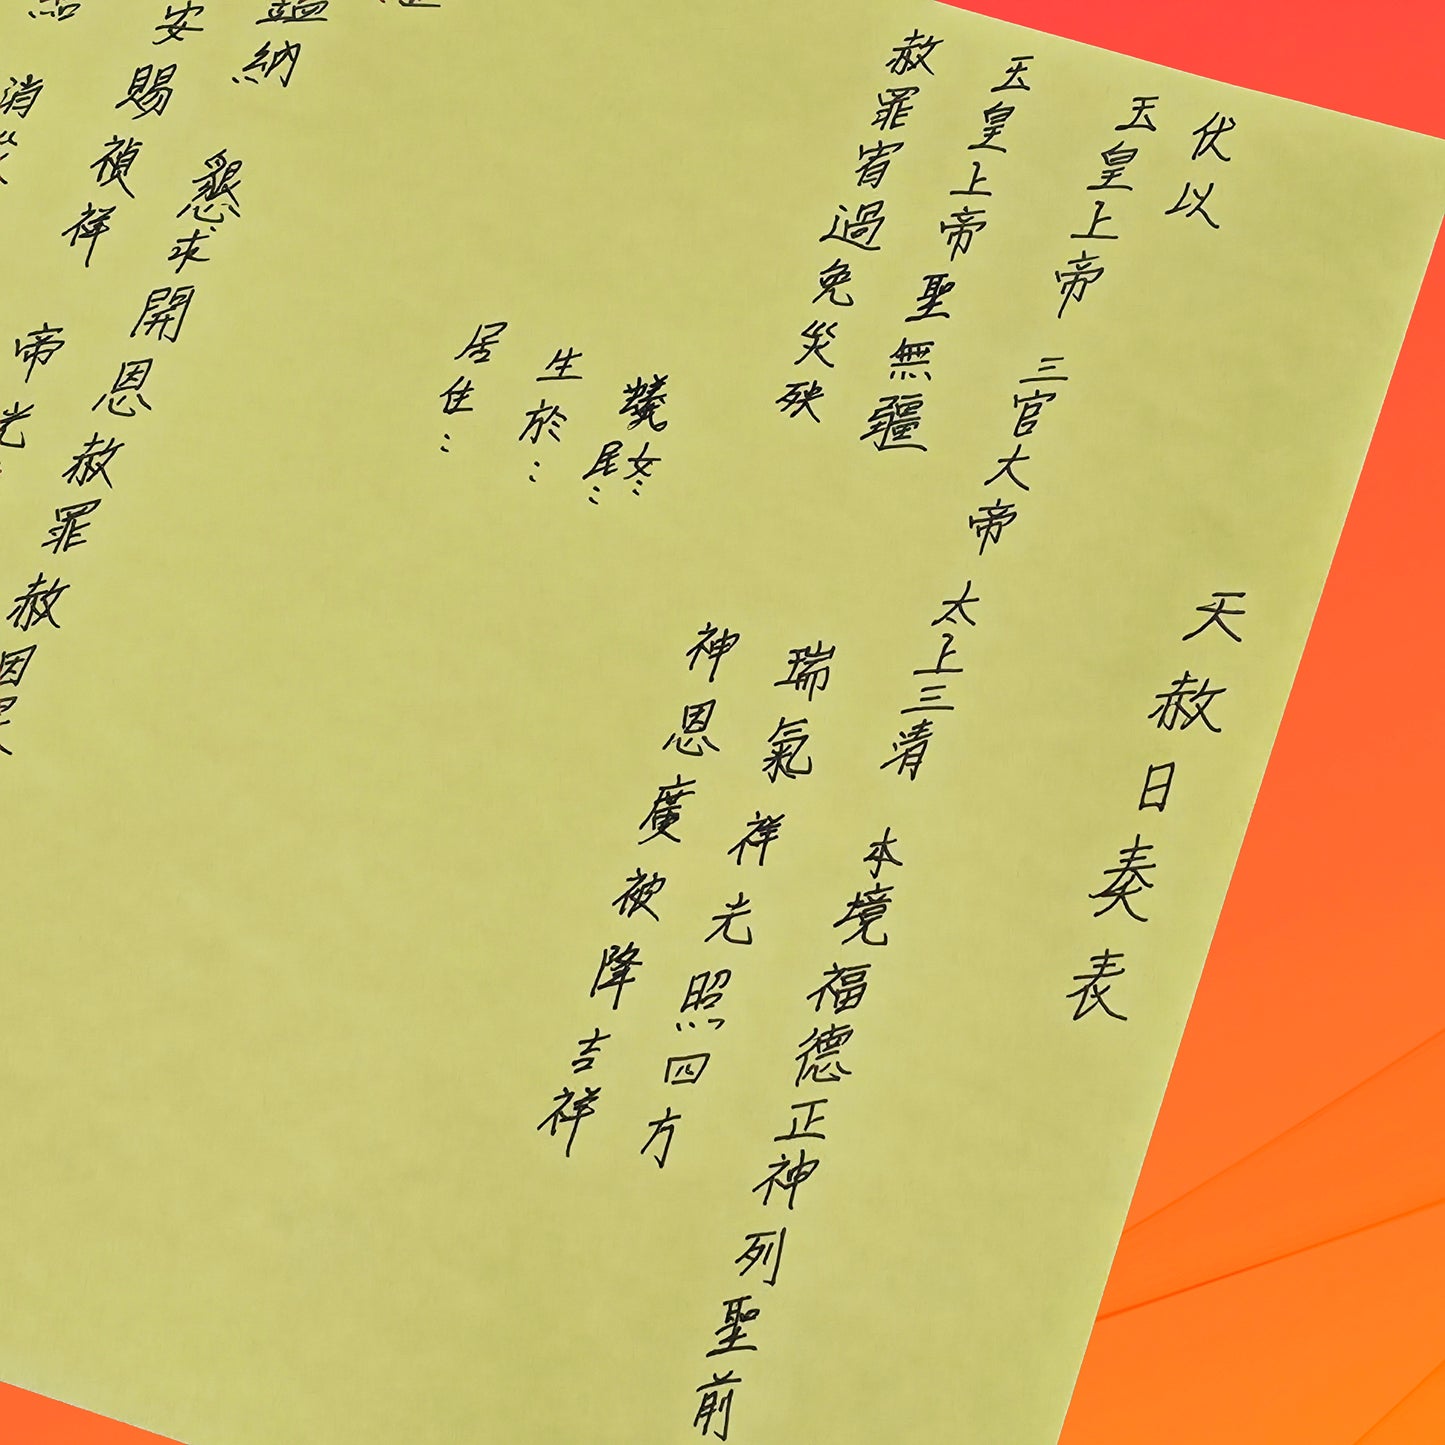 天赦日奏表
伏以
玉皇上帝 三官大帝 太上三清 本境福德正神列聖前
玉皇上帝聖無疆 瑞氣祥光照四方
赦罪宥過免災殃 神恩廣被降吉祥
蟻女…
民…
生於…
居住…
鑑納 懇求開恩赦罪赦因
安賜禎祥 帝光
消災